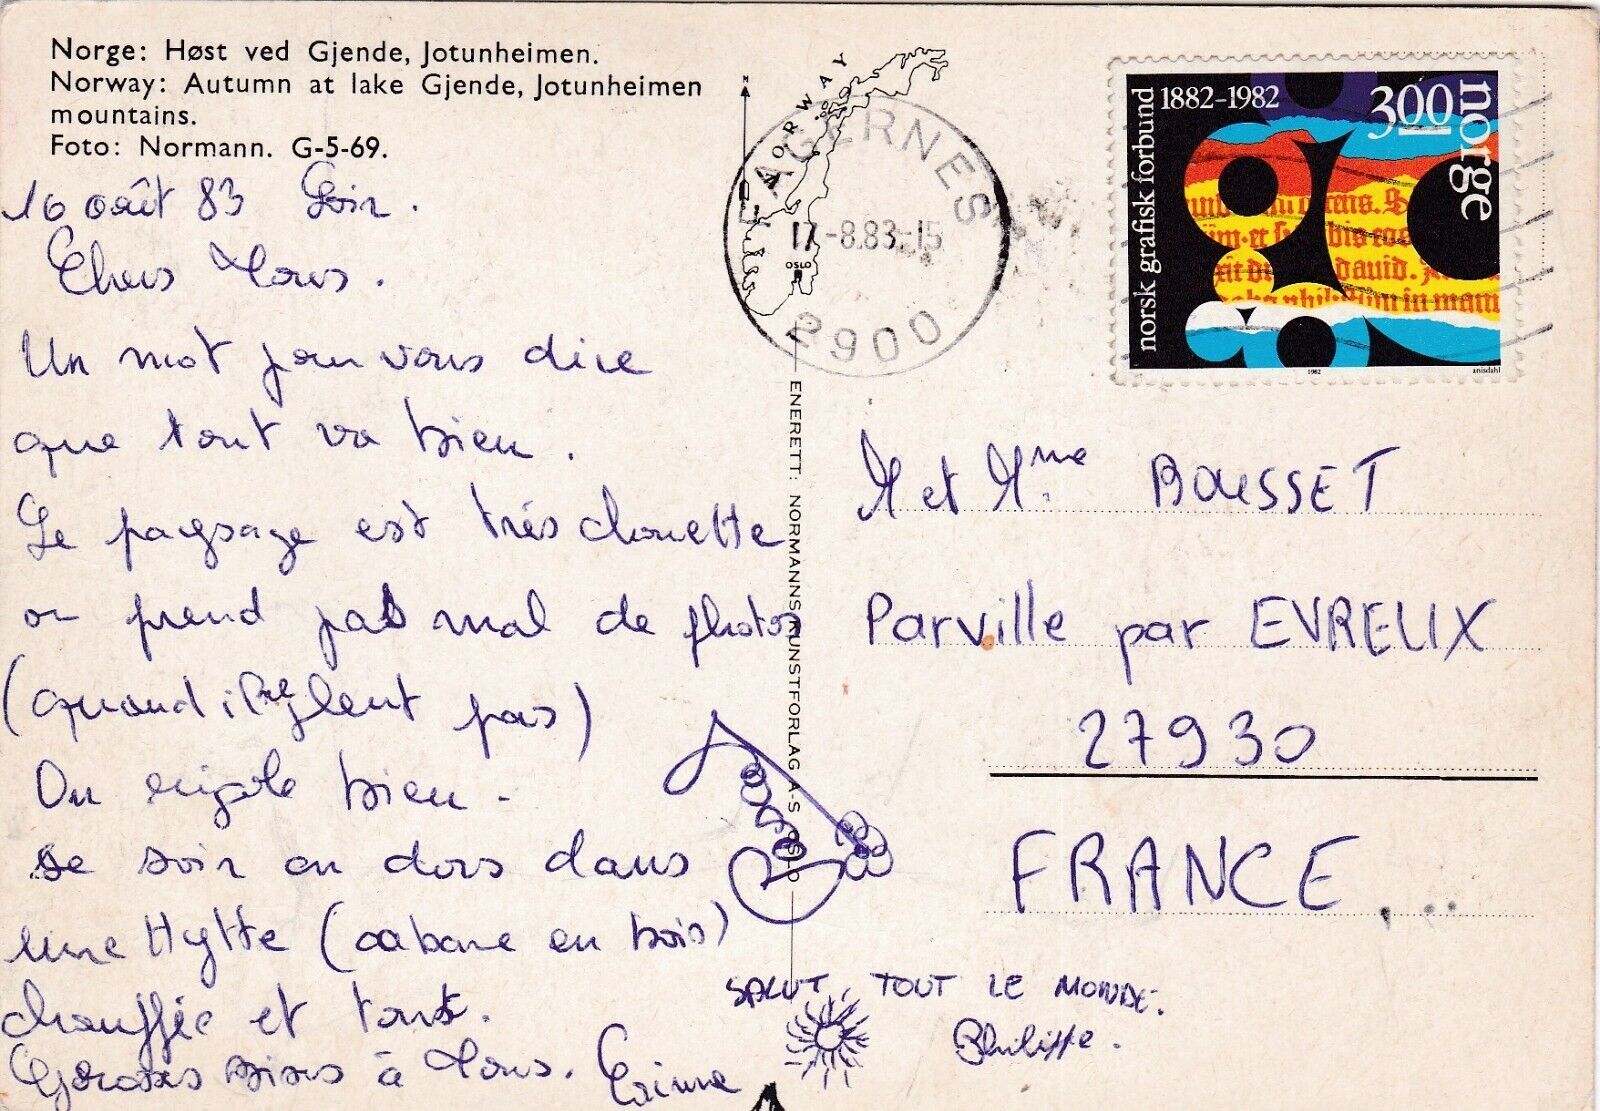 Norge: Høst ved Gjende, Jotunheimen.
Norway: Autumn at lake Gjende, Jotunheimen
mountains.
Foto: Normann. G-5-69.
16 août 83 Soir.
Chers Tous.
Un mot pour vous dire
que tout va bien.
Le paysage est très chouette
on prend pas mal de photos
(quand il pleut pas)
On rigole bien.
Le soir on dors dans
une Hytte (cabane en bois)
chauffée et tout.
Grosses bises à Tous.
SALUT TOUT LE MONDE.
Philippe.
ENERETT: NORMANNS KUNSTFORLAG A-S OSLO
NORWAY
N
OSLO
FAGERNES
17-8.83-15
2900
norsk grafisk forbund 1882-1982
300
norge
1982
anisdahl
M et Mme BOUSSET
Parville par EVREUX
27930
FRANCE